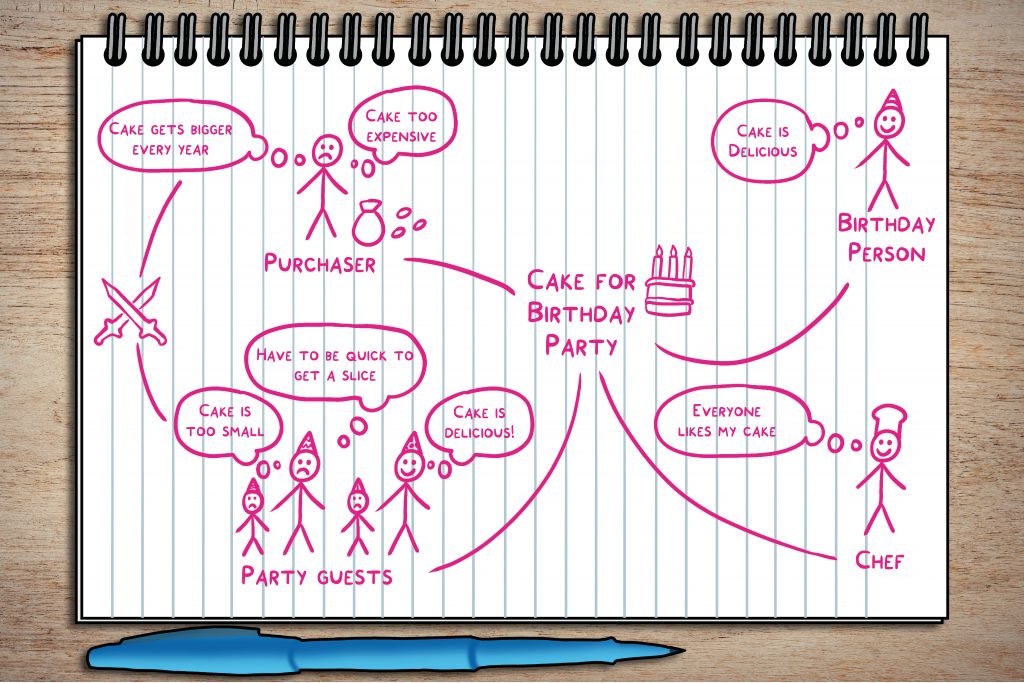 Cake gets bigger
every year
Cake too
expensive
Purchaser
Cake is
Delicious
Birthday
Person
Cake for
Birthday
Party
Have to be quick to
get a slice
Cake is
too small
Cake is
delicious!
Party guests
Everyone
likes my cake
Chef